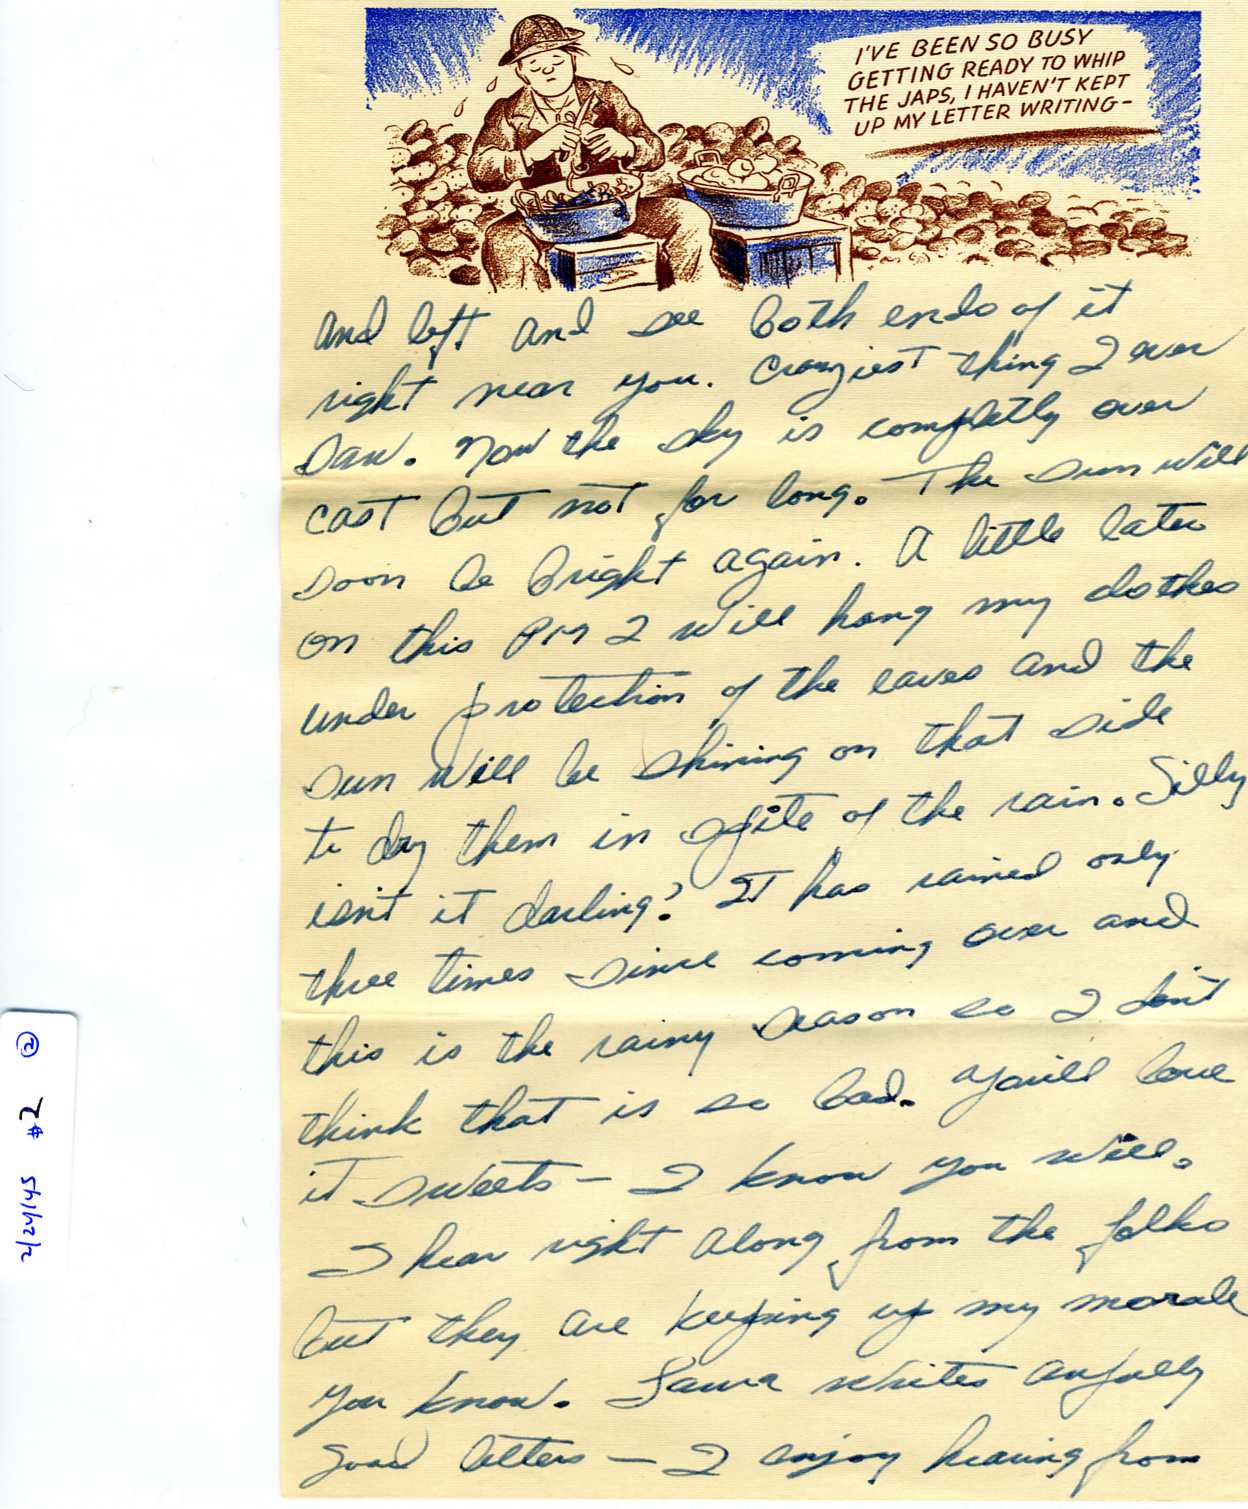 I'VE BEEN SO BUSY
GETTING READY TO WHIP
THE JAPS, I HAVEN'T KEPT
UP MY LETTER WRITING-
and left and see both ends of it
right near you. Craziest thing I ever
saw. Now the sky is completly over
cast but not for long. The sun will
soon be bright again. A little later
on this PM I will hang my clothes
under protection of the eaves and the
sun will be shining on that side
to dry them in spite of the rain. Silly
isn't it darling? It has rained only
three times since coming over and
this is the rainy season so I don't
think that is so bad. You'll love
it sweets - I know you will.
I hear right along from the folks
but they are keeping up my morale
you know. Laura writes awfully
good letters - I enjoy hearing from
② #2 2/24/45